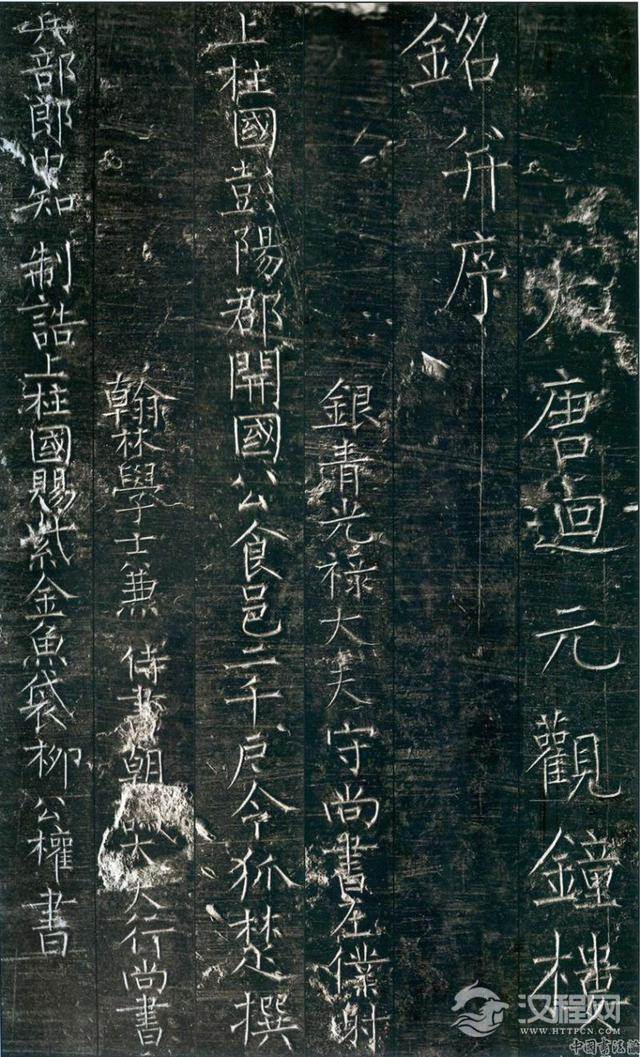 大唐迴元觀鐘樓
銘并序
銀青光禄大夫守尚書左僕射
上柱國彭陽郡開國公食邑二千户令狐楚撰
翰林學士兼侍書朝議大夫行尚書
兵部郎中知制誥上柱國賜紫金魚袋柳公權書
汉程网
WWW.HTTPCN.COM
中国书法